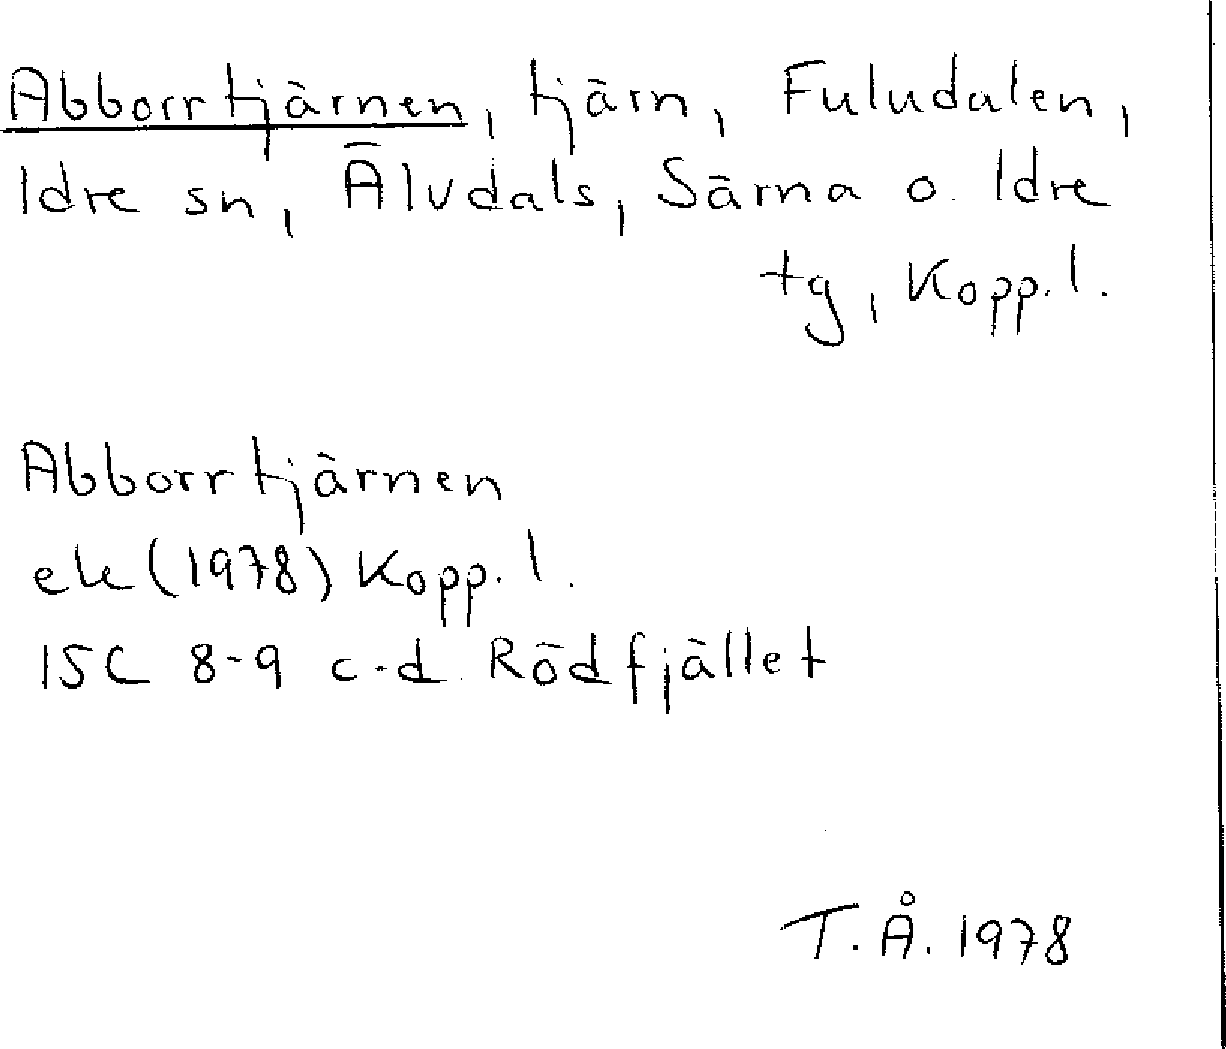 Abborrtjärnen, tjärn, Fuludalen,
Idre sn, Älvdals, Särna o. Idre
tg, Kopp. l.
Abborrtjärnen
ek (1978) Kopp. l.
15C 8-9 c-d Rödfjället
T.Å. 1978